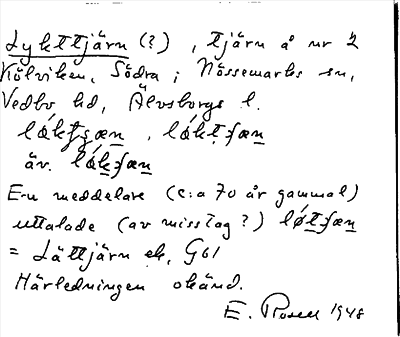 Lykttjärn (?), tjärn å nr 2
Kölviken, Södra; Nössemarks sn,
Vedbo hd, Älvsborgs l.
äv.
En meddelare (c:a 70 år gammal)
uttalade (av misstag?)
= Lättjärn ek, G61
Härledningen okänd.
E. Rosell 1948